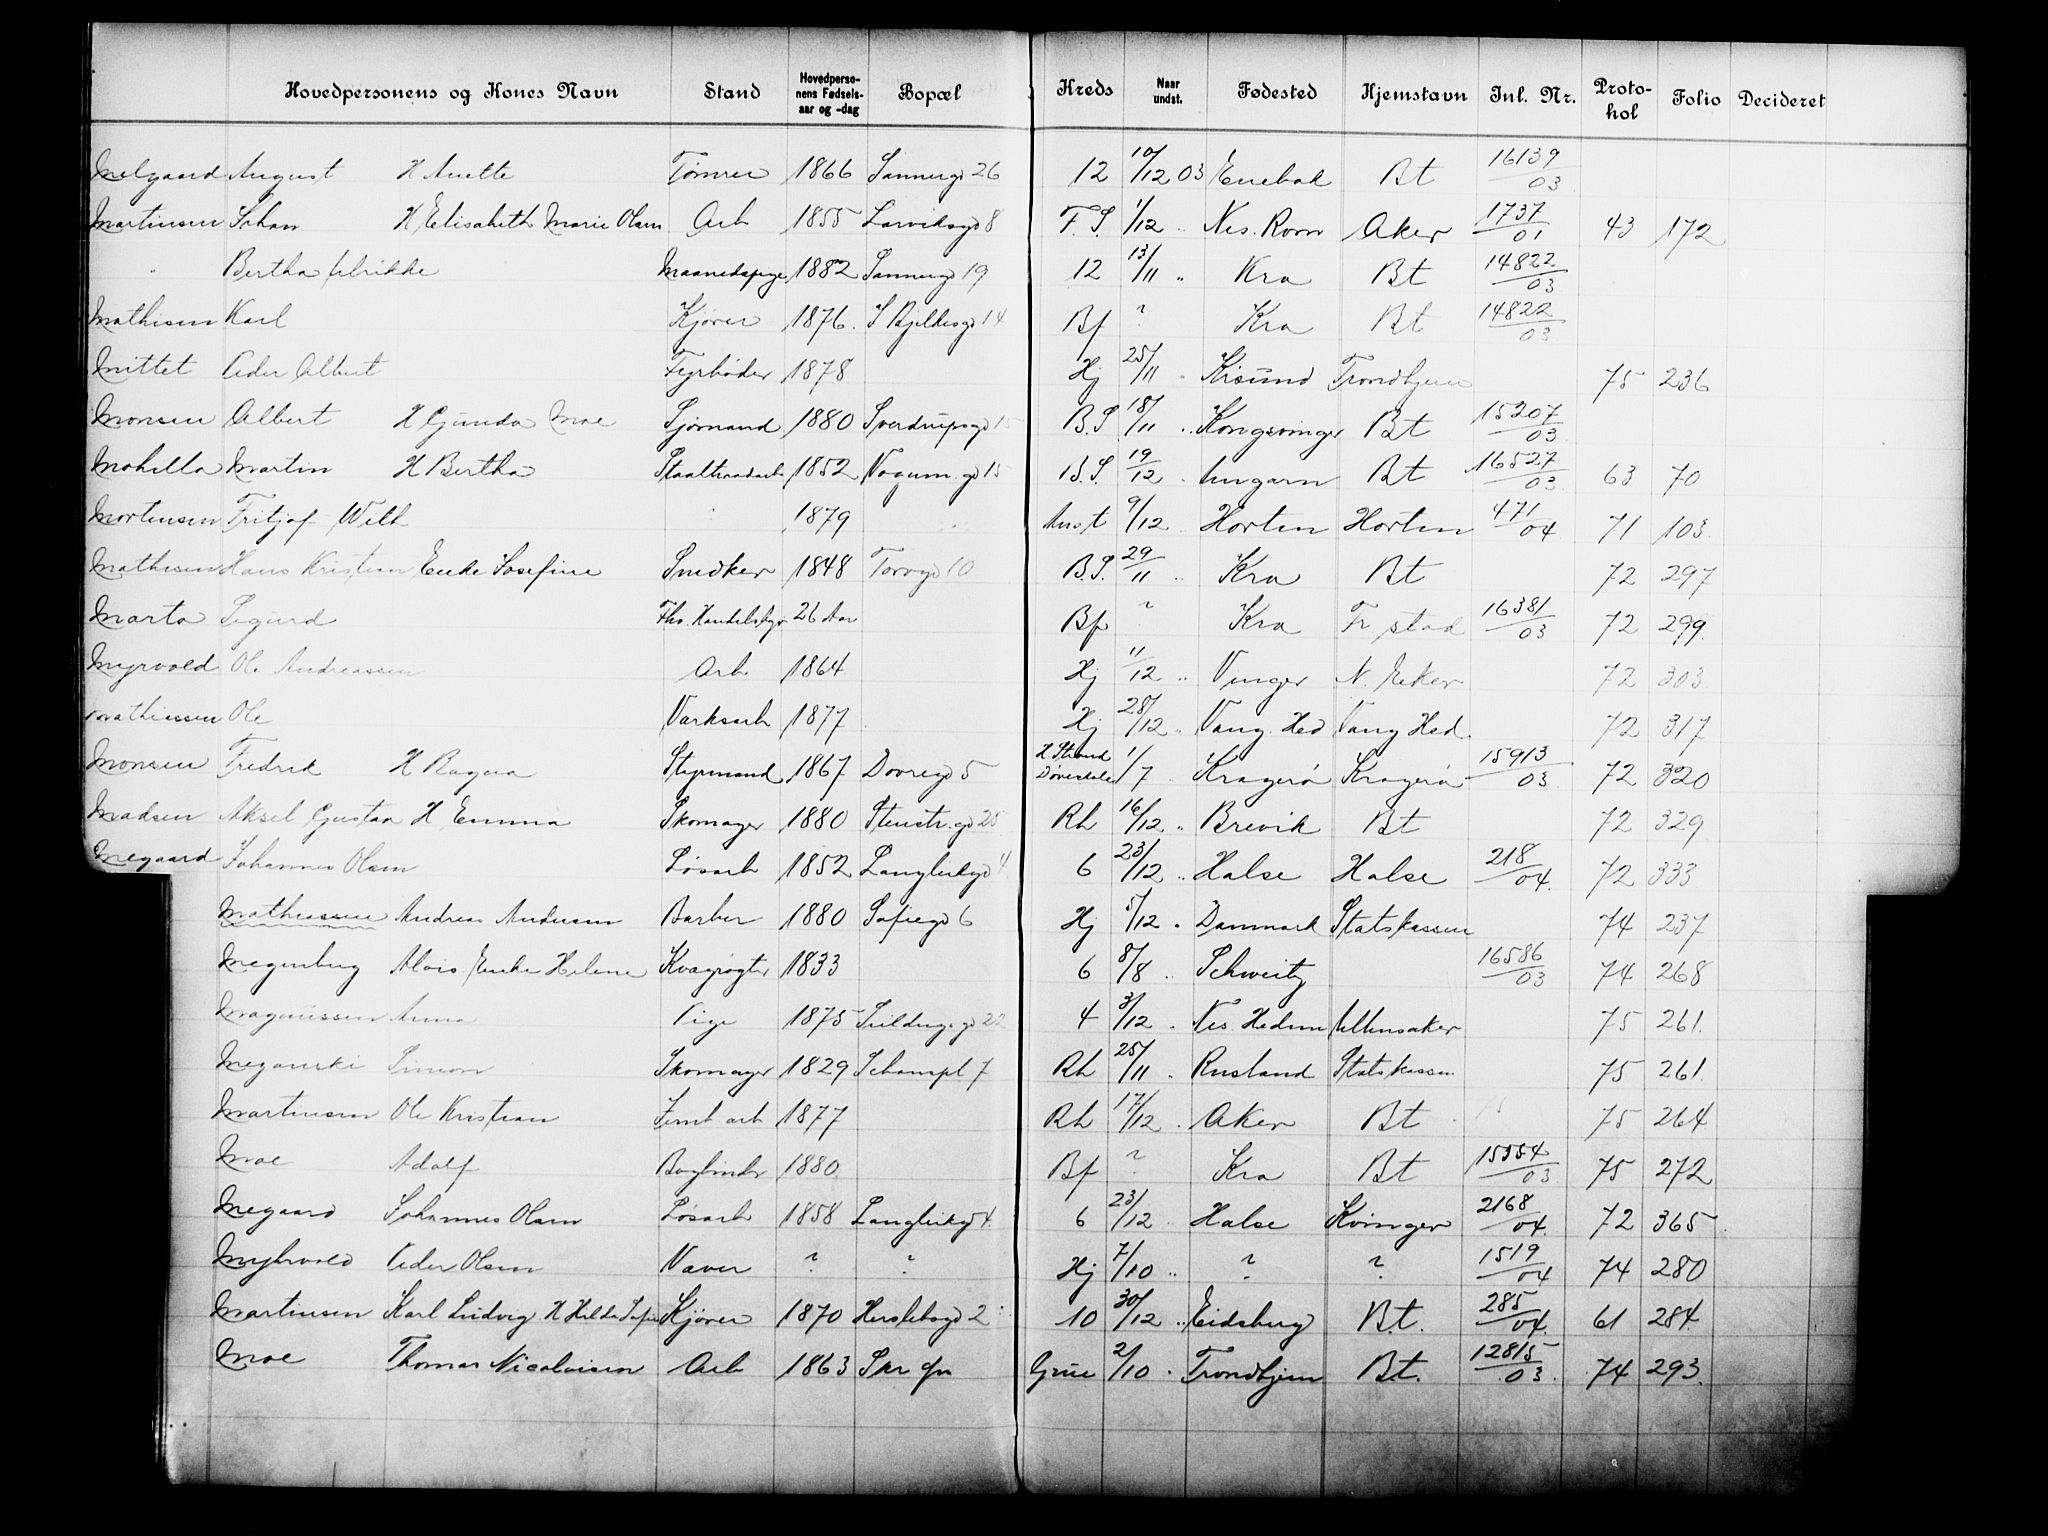 Hovedpersonens og Kones Navn Stand Hovedpersonens Fødselsaar og -dag Bopæl Kreds Naar undst. Fødested Hjemstavn Inl. Nr. Protokol Folio Decideret
Melgaard August H Anette Tømrer 1866 Sannergd 26 12 10/12 03 Enebak Bt 16139/03
Martinsen Johan H Elisabeth Marie Olsen Arb 1855 Larviksgd 8 F.S. 1/12 " Nes. Rom Aker 1737/01 43 172
" Bertha Ulrikke 1882 Sannergd 19 12 13/11 " Kra Bt 14822/03
Mathisen Karl Kjører 1876 14 Bf ? Kra Bt 14822/03
Mittet Peder Albert Fyrbøder 1878 Hj 25/11 " Krsund Trondhjem 75 236
Monsen Albert H Gunda Moe Sjømand 1880 Sverdrupsgd 15 B.S 18/11 " Kongsvinger Bt 15207/03
Mohilla Martin H Bertha Staaltraadarb 1852 Vogum.gd 15 B.S. 19/12 " Ungarn Bt 16527/03 63 70
Mortensen Fritjof Wilh 1879 Anst 9/12 " Horten Horten 471/04 71 103
Mathisen Hans Kristian Enke Josefine Snedker 1848 Torvgd 10 B.S. 29/11 " Kra Bt 72 297
Marta Sigurd Fhv. 26 Aar Bf ? Kra Fr. stad 16381/03 72 299
Myrvold Ole Andreassen Arb 1864 Hj 11/12 " Vinger N. Eker 72 303
Mathiassen Ole Værksarb 1877 Hj 28/12 " Vang Hed Vang Hed. 72 317
Monsen Fredrik H Ragna Styrmand 1867 Dovregd 5 H Strand 1/7 " Kragerø Kragerø 15913/03 72 320
Madsen Aksel Gustav H Emma Skomager 1880 Stenstr.gd 25 Rh 16/12 " Brevik Bt 72 329
Megaard Johannes Olsen Løsarb 1852 Langlerkgd 4 6 23/12 " Halse Halse 218/04 72 333
Mathiassen Andreas Andersen Barber 1880 Sofiegd 6 Hj 5/12 " Danmark Statskassen 74 237
Megenberg Alois Enke Helene Kvægrøgter 1833 6 8/8 " Schweitz 16586/03 74 268
Magnussen Anna Pige 1875 22 4 3/12 " Nes. Hedem Ullensaker 75 261
Meganski Simon Skomager 1829 Schampl 7 Rh 25/11 " Rusland Statskassen 75 261
Martinsen Ole Kristian Jernb arb 1877 Rh 17/12 " Aker Bt 75 264
Moe Adolf Bogbinder 1880 Bf ? Kra Bt 15554/03 75 272
Megaard Johannes Olsen Løsarb 1858 Langlerkgd 4 6 23/12 " Halse Kvinger 2168/04 72 365
Myhrvold Peder Olsen Væver ? ? Hj 7/10 " ? ? 1519/04 74 280
Martinsen Karl Ludvig H Hilda Sofie Kjører 1870 Herslebsgd 2 10 30/12 " Eidsberg Bt. 285/04 61 284
Moe Thomas Nicolaisen Arb 1863 Grue 2/10 " Trondhjem Bt. 12815/03 74 293